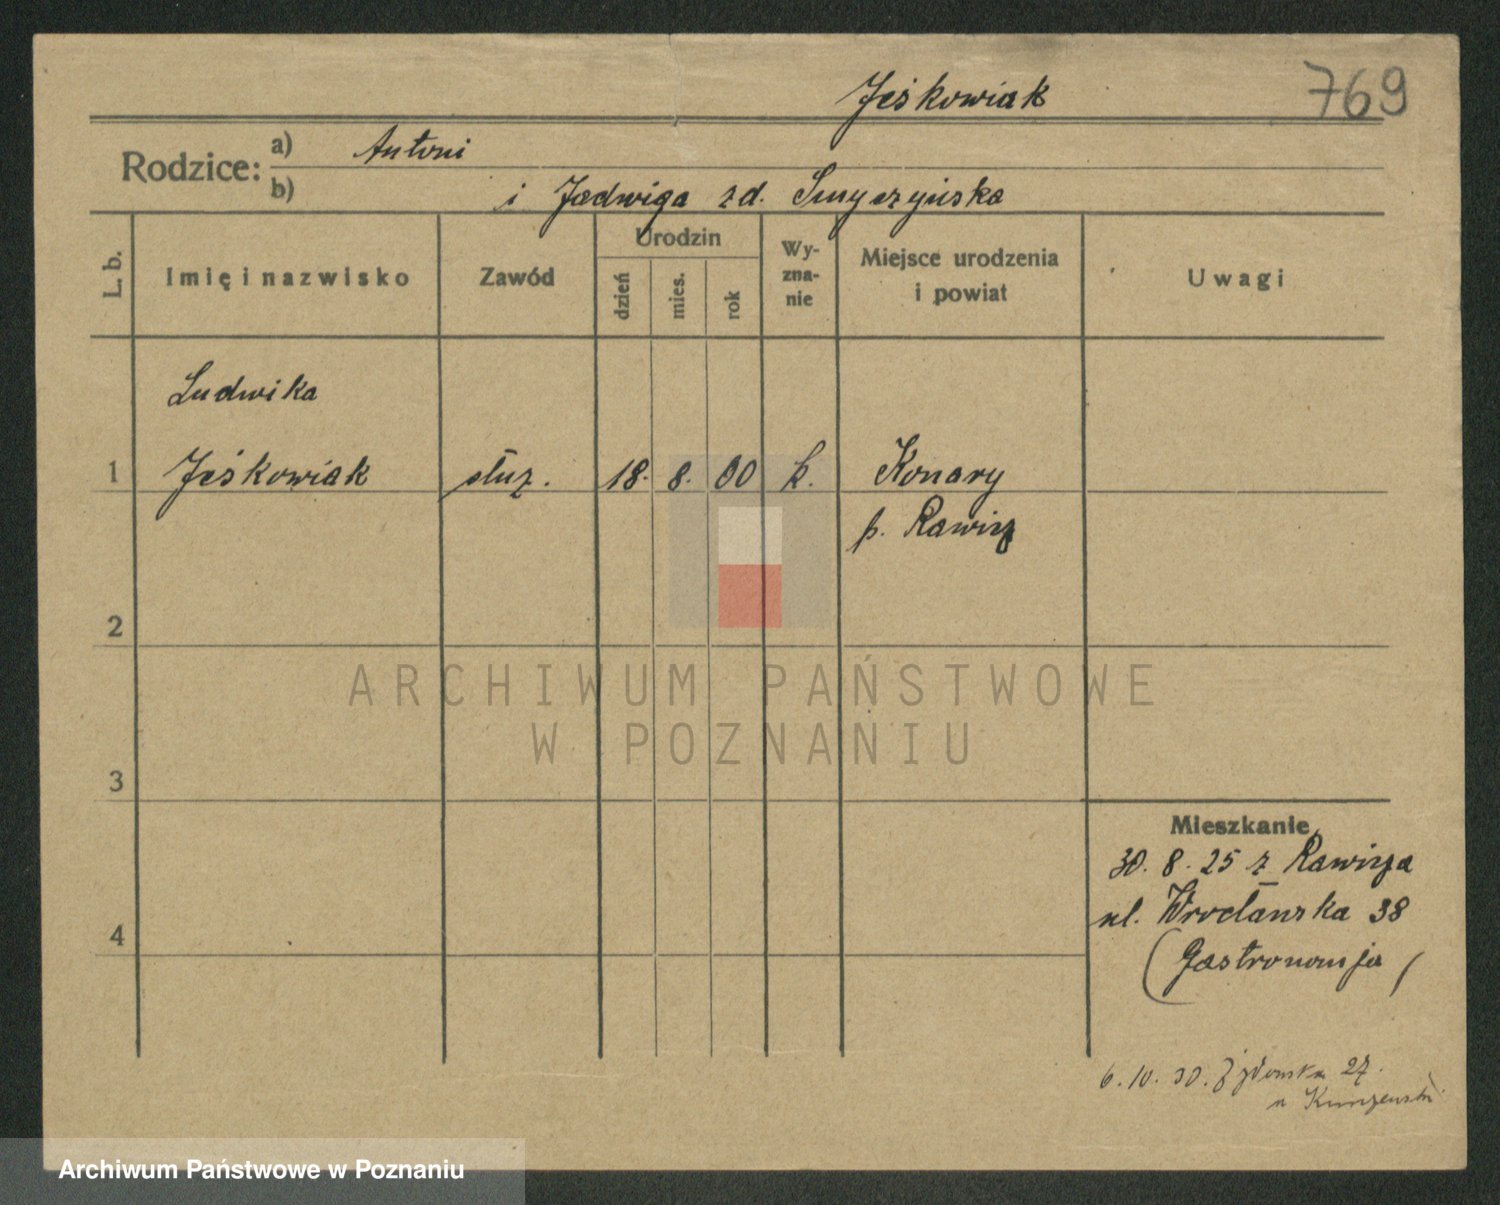 Jeśkowiak
769
Rodzice: a) Antoni
b) i Jadwiga zd. Smyczyńska
L. b.
Imię i nazwisko
Zawód
Urodzin
dzień
mies.
rok
Wy-
zna-
nie
Miejsce urodzenia
i powiat
Uwagi
Ludwika
1 Jeśkowiak służ. 18. 8. 00 k. Konary
p. Rawicz
2
ARCHIWUM PAŃSTWOWE
W POZNANIU
3
Mieszkanie
30. 8. 25 z Rawicza
ul. Wrocławska 38
(Gastronomja)
4
6. 10. 30. Żydowska 27.
Archiwum Państwowe w Poznaniu